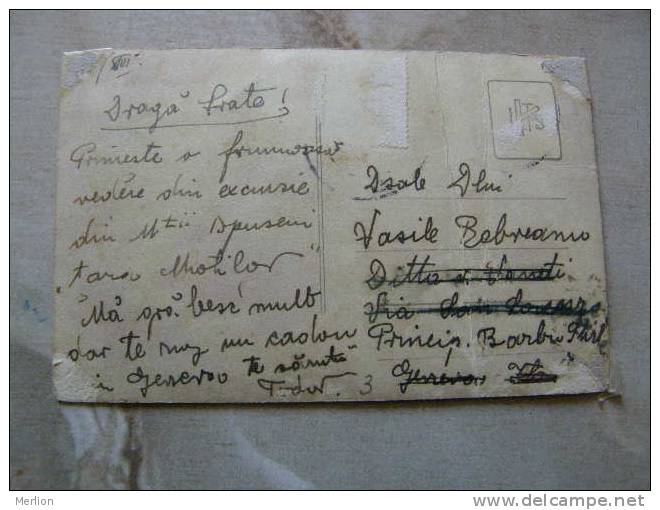 VIII.
Dragă frate!
Primeste o frumoasă
vedere din excursie
din M-tii Apuseni
"Țara Moților"
Mă grăbesc mult
dar te rog un cadou
in Genevao te săruta
T. dor.
Dsale Dlui
Vasile Bebreanu
Ditta
Via San Lorenzo
Princip. Barbu Știrb
3
Genevao
Merlion
www.delcampe.net